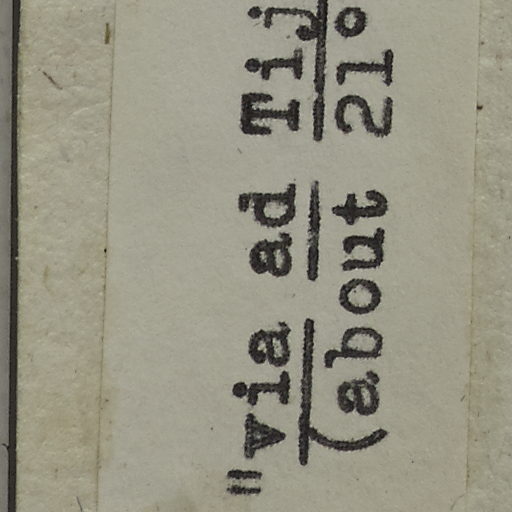 "via ad Tij
(about 21°